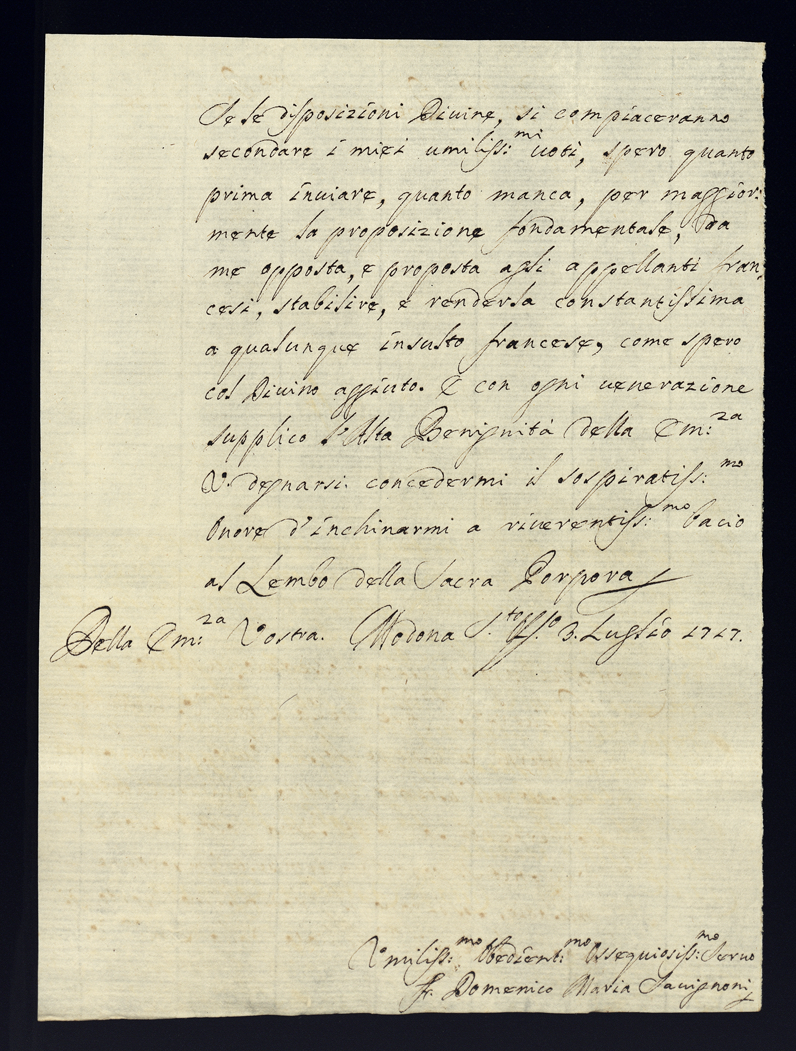 Se le disposizioni Divine, si compiaceranno
secondare i miei umiliss:mi voti, spero quanto
prima inviare, quanto manca, per maggior:
mente la proposizione fondamentale, da
me opposta, e proposta agli appellanti fran:
cesi, stabilire, e renderla constantissima
a qualunque insulto francese, come spero
col Divino aggiuto. E con ogni venerazione
supplico l'Alta Benignità della Em:za
V. degnarsi concedermi il sospiratiss:mo
Onore d'inchinarmi a riverentiss:mo bacio
al Lembo della Sacra Porpora
Della Em:za Vostra. Modona 3. Luglio 1717.
Vmiliss:mo Obedient:mo Ossequiosiss:mo Servo
Fr. Domenico Maria Savignoni